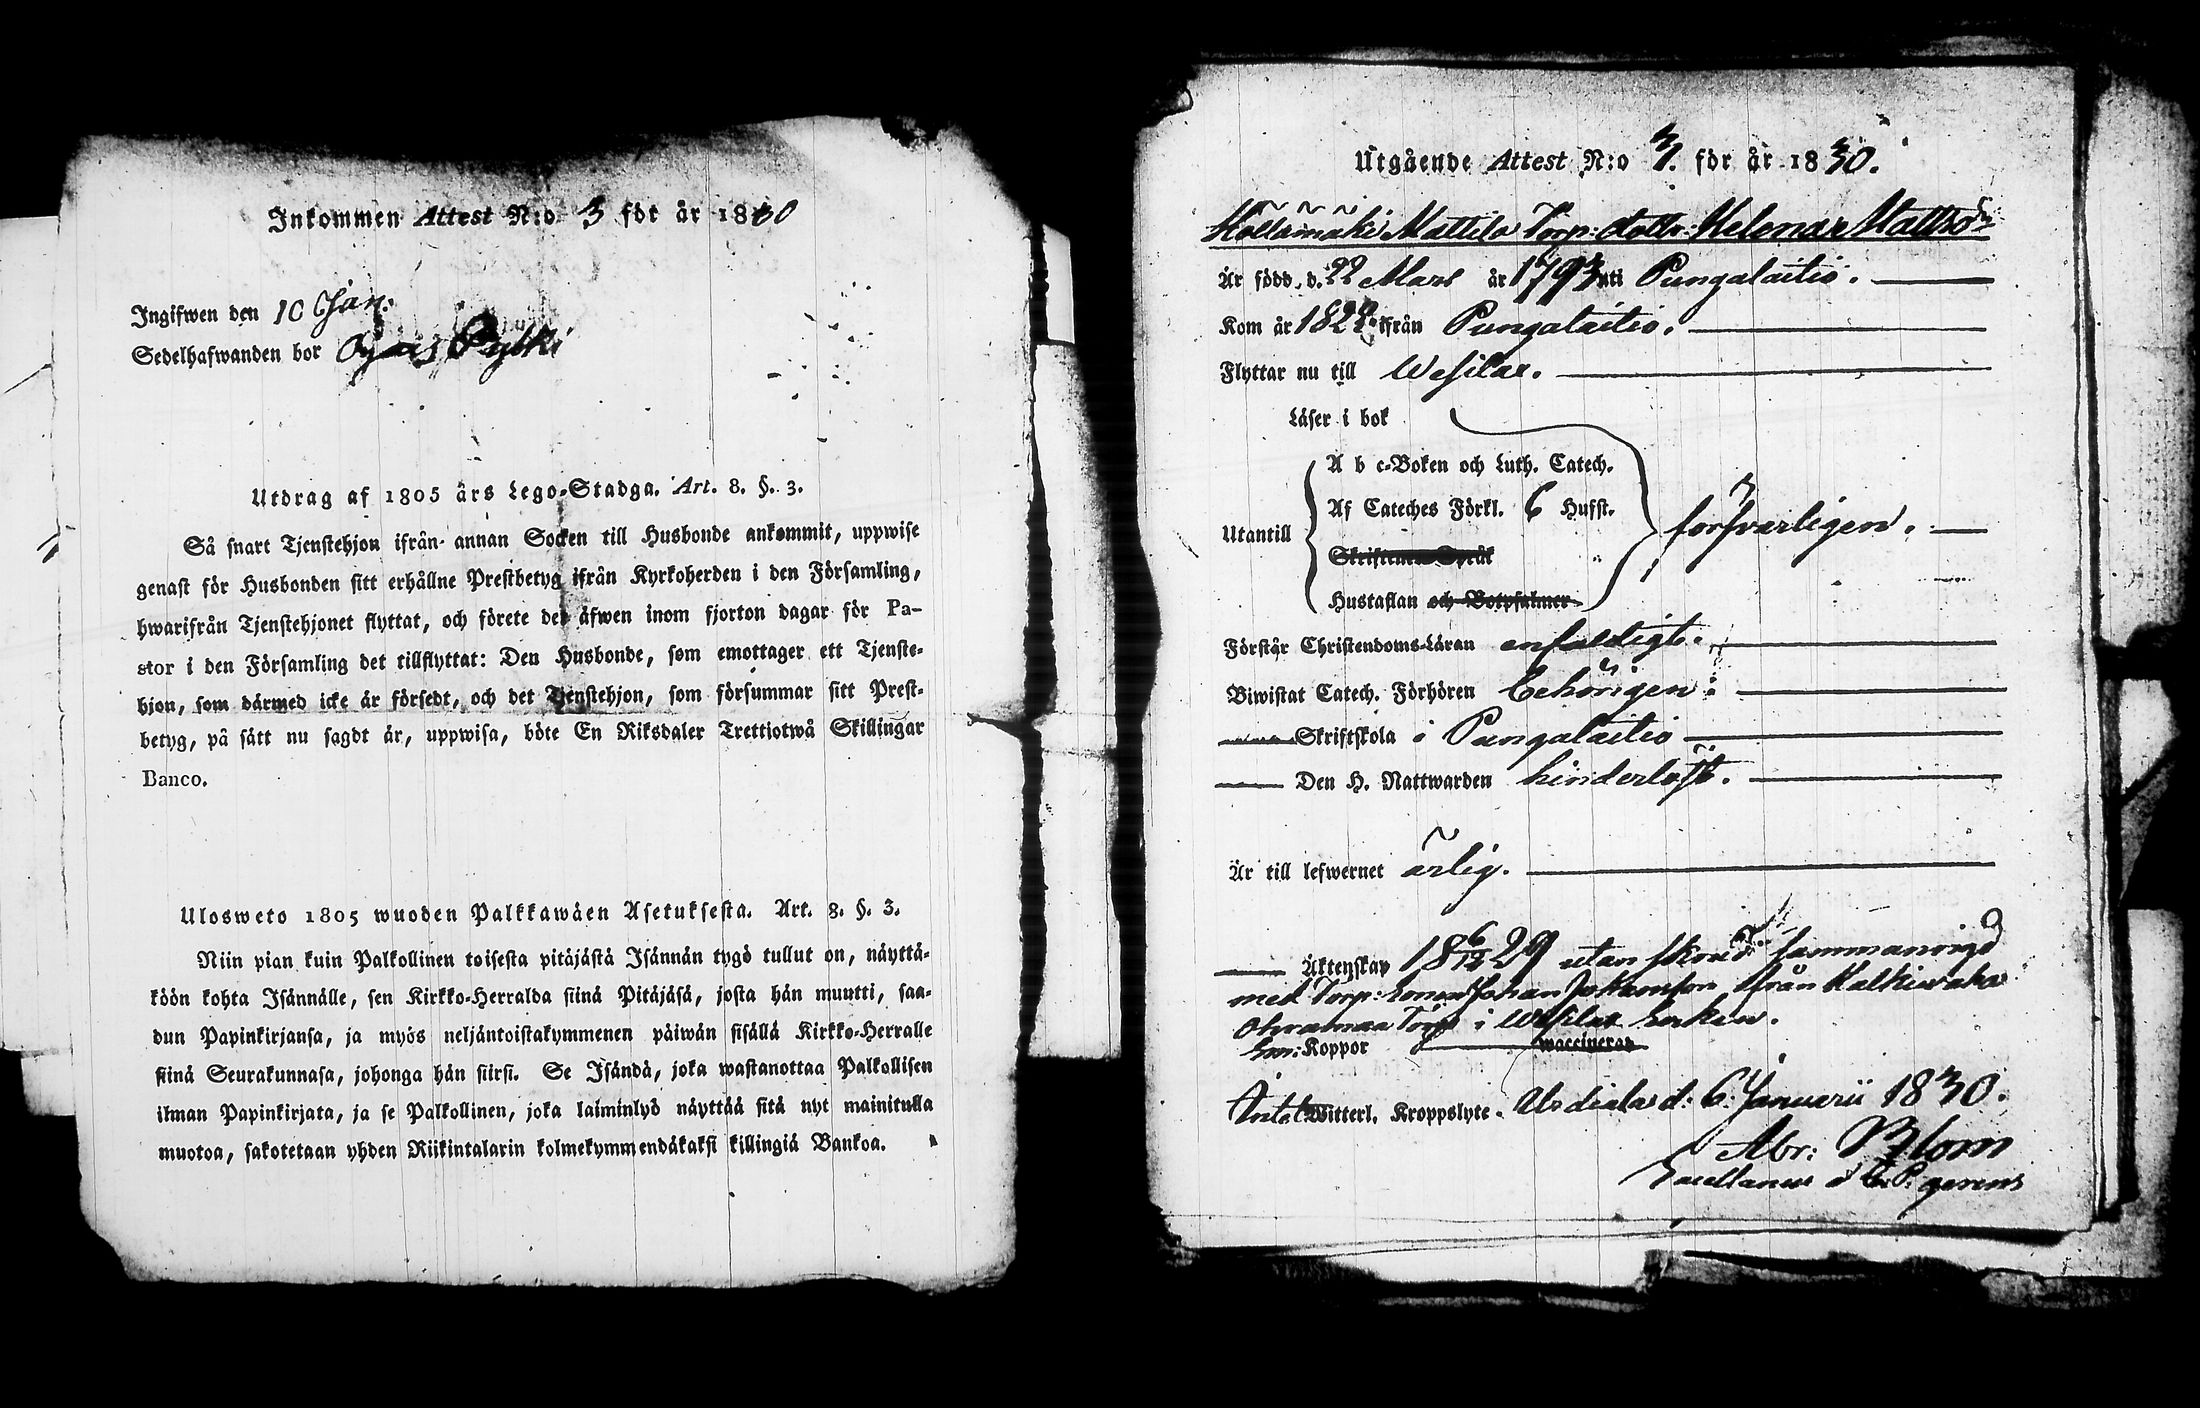 Inkommen Attest N:o 3 för år 1830
Ingifwen den 10 Jan:
Sedelhafwanden bor
Utdrag af 1805 års Lego-Stadga. Art. 8. §. 3.
Så snart Tjenstehjon ifrån annan Socken till Husbonde ankommit, uppwise
genast för Husbonden sitt erhållne Prestbetyg ifrån Kyrkoherden i den Församling,
hwarifrån Tjenstehjonet flyttat, och förete det äfwen inom fjorton dagar för Pa-
stor i den Församling det tillflyttat: Den Husbonde, som emottager ett Tjenste-
hjon, som därmed icke är försedt, och det Tjenstehjon, som försummar sitt Prest-
betyg, på sätt nu sagdt är, uppwisa, böte En Riksdaler Trettiotwå Skillingar
Banco.
Ulosweto 1805 wuoden Palkkawäen Asetuksesta. Art. 8. §. 3.
Niin pian kuin Palkollinen toisesta pitäjästä Isännän tygö tullut on, näyttä-
köön kohta Isännälle, sen Kirkko-Herralda siinä Pitäjäsä, josta hän muutti, saa-
dun Papinkirjansa, ja myös neljäntoistakymmenen päiwän sisällä Kirkko-Herralle
siinä Seurakunnasa, johonga hän siirsi. Se Isändä, joka wastanottaa Palkollisen
ilman Papinkirjata, ja se Palkollinen, joka laiminlyö näyttää sitä nyt mainitulla
muotoa, sakotetaan yhden Riikintalarin kolmekymmendäkaksi killingiä Bankoa.
Utgående Attest N:o 3. för år 1830.
Mattila Torp: dottr: Helena Mattsdr
Är född d. 22 Mars år 1793 uti Pungalaitio.
Kom år 1822 ifrån Pungalaitio.
Flyttar nu till Wesilax.
Läser i bok
A b c-Boken och Luth. Catech.
Af Cateches Förkl. 6 Hufst.
Utantill försvarligen.
Skriftenes Språk
Hustaflan och Botpsalmer
Förstår Christendoms-Läran enfaldigt.
Biwistat Catech. Förhören behörigen:
Skriftskola i Pungalaitio
Den H. Nattwarden hinderlöst.
Är till lefwernet ärlig.
Äktenskap 18 6/12 29 utan skrud sammanvigd
med Torp: sonen Johan Johansson från
Torp i Wesilax Socken.
Koppor waccinerad
Witterl. Kroppslyte. Urdiala d: 6 Januarii 1830.
Abr: Blom
Sacellanus V. P. gerens